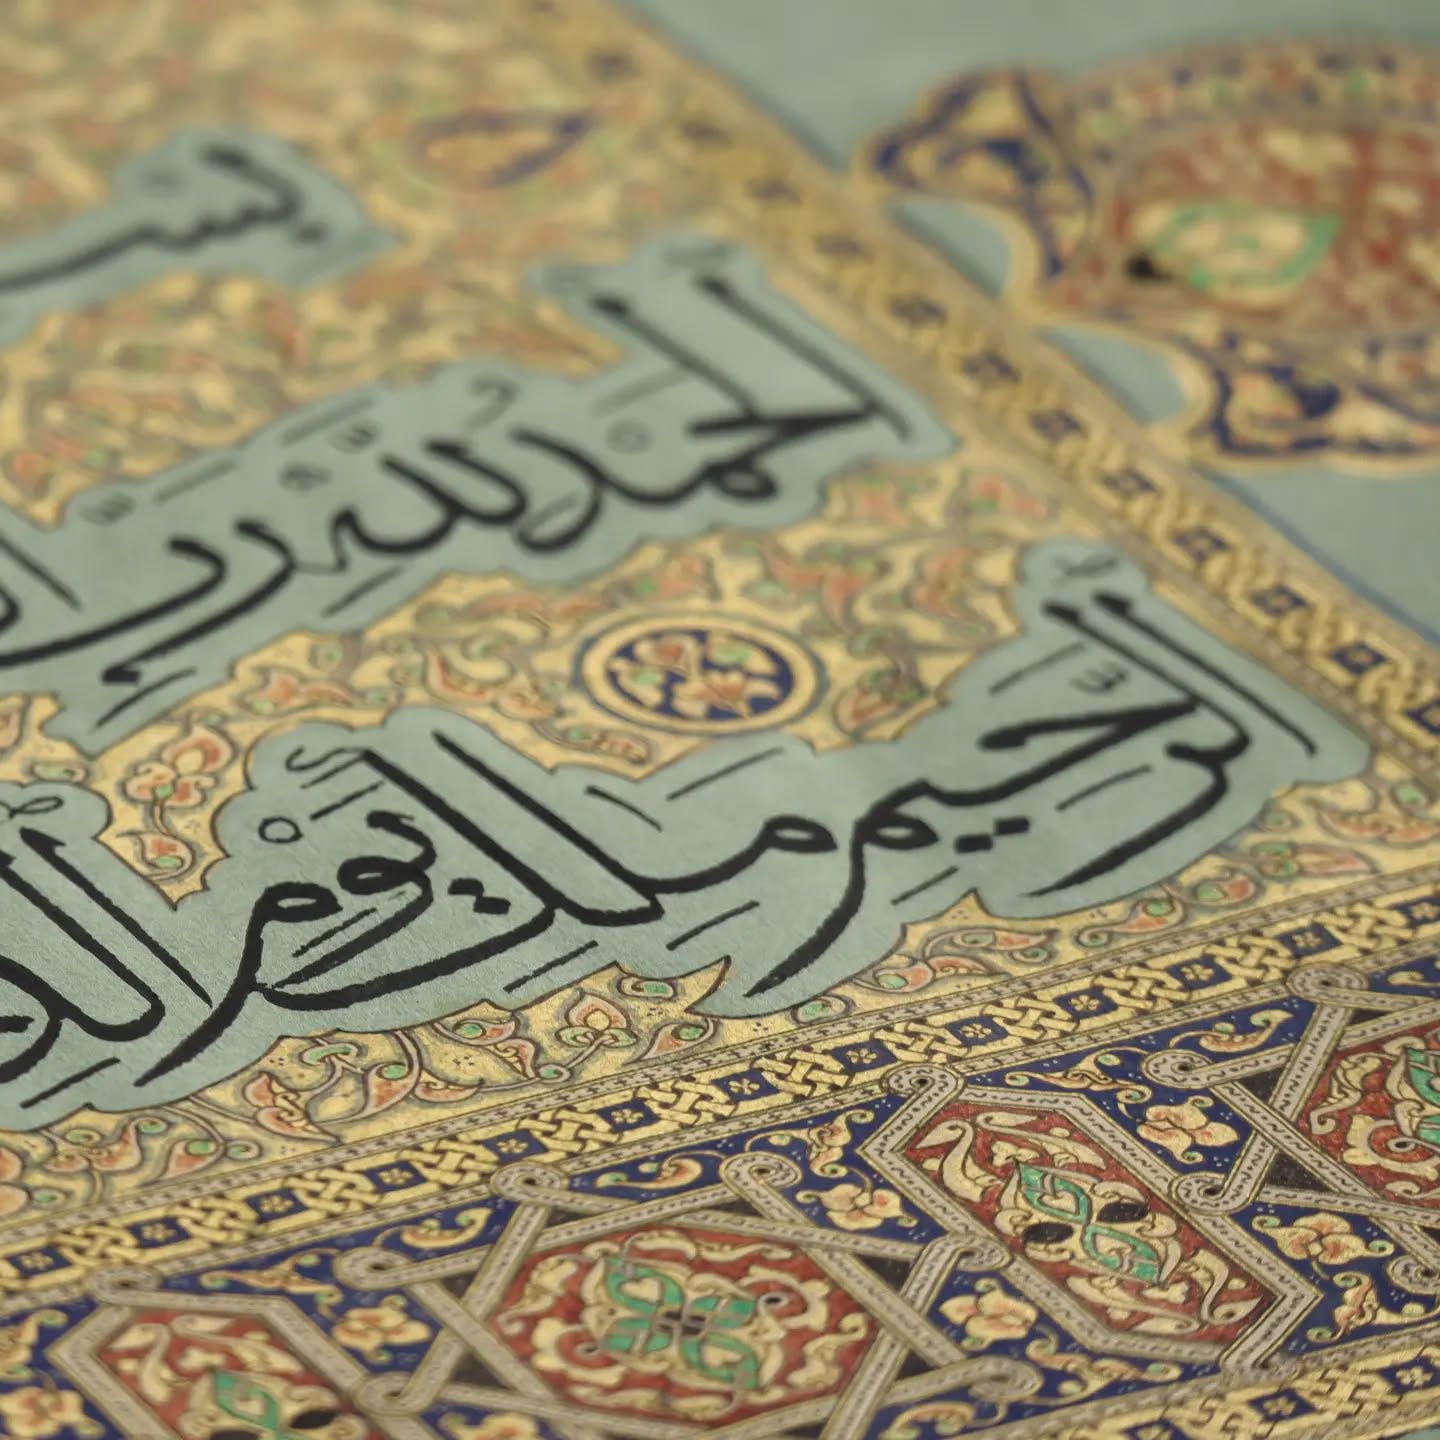 بس
الْحَمْدُ لِلَّهِ رَبِّ ا
الرَّحِيمِ مَٰلِكِ يَوْمِ الدِّ